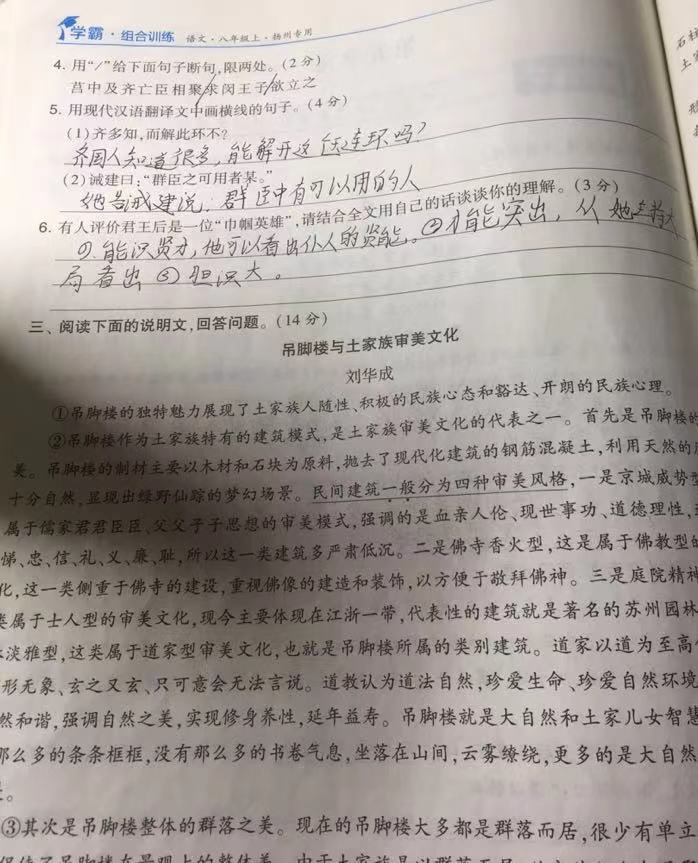 学霸·组合训练 语文·八年级上·扬州专用
4. 用“/”给下面句子断句,限两处。(2分)
莒中及齐亡臣相聚/求闵王子/欲立之
5. 用现代汉语翻译文中画横线的句子。(4分)
(1)齐多知,而解此环不?
齐国人知道很多,能解开这个连环吗?
(2)诫建曰:“群臣之可用者某。”
他告诫建说:群臣中有可以用的人
6. 有人评价君王后是一位“巾帼英雄”,请结合全文用自己的话谈谈你的理解。(3分)
①能识贤才,他可以看出仆人的贤能。②才能突出,从她主持大
局看出③胆识大。
三、阅读下面的说明文,回答问题。(14分)
吊脚楼与土家族审美文化
刘华成
①吊脚楼的独特魅力展现了土家族人随性、积极的民族心态和豁达、开朗的民族心理。
②吊脚楼作为土家族特有的建筑模式,是土家族审美文化的代表之一。首先是吊脚楼的
美。吊脚楼的制材主要以木材和石块为原料,抛去了现代化建筑的钢筋混凝土,利用天然的
十分自然,显现出绿野仙踪的梦幻场景。民间建筑一般分为四种审美风格,一是京城威势型
属于儒家君君臣臣、父父子子思想的审美模式,强调的是血亲人伦、现世事功、道德理性,
悌、忠、信、礼、义、廉、耻,所以这一类建筑多严肃低沉。二是佛寺香火型,这是属于佛教型的
化,这一类侧重于佛寺的建设,重视佛像的建造和装饰,以方便于敬拜佛神。三是庭院精神
类属于士人型的审美文化,现今主要体现在江浙一带,代表性的建筑就是著名的苏州园林
淡雅型,这类属于道家型审美文化,也就是吊脚楼所属的类别建筑。道家以道为至高
形无象、玄之又玄、只可意会无法言说。道教认为道法自然,珍爱生命、珍爱自然环境
然和谐,强调自然之美,实现修身养性,延年益寿。吊脚楼就是大自然和土家儿女智慧
那么多的条条框框,没有那么多的书卷气息,坐落在山间,云雾缭绕,更多的是大自然
③其次是吊脚楼整体的群落之美。现在的吊脚楼大多都是群落而居,很少有单立